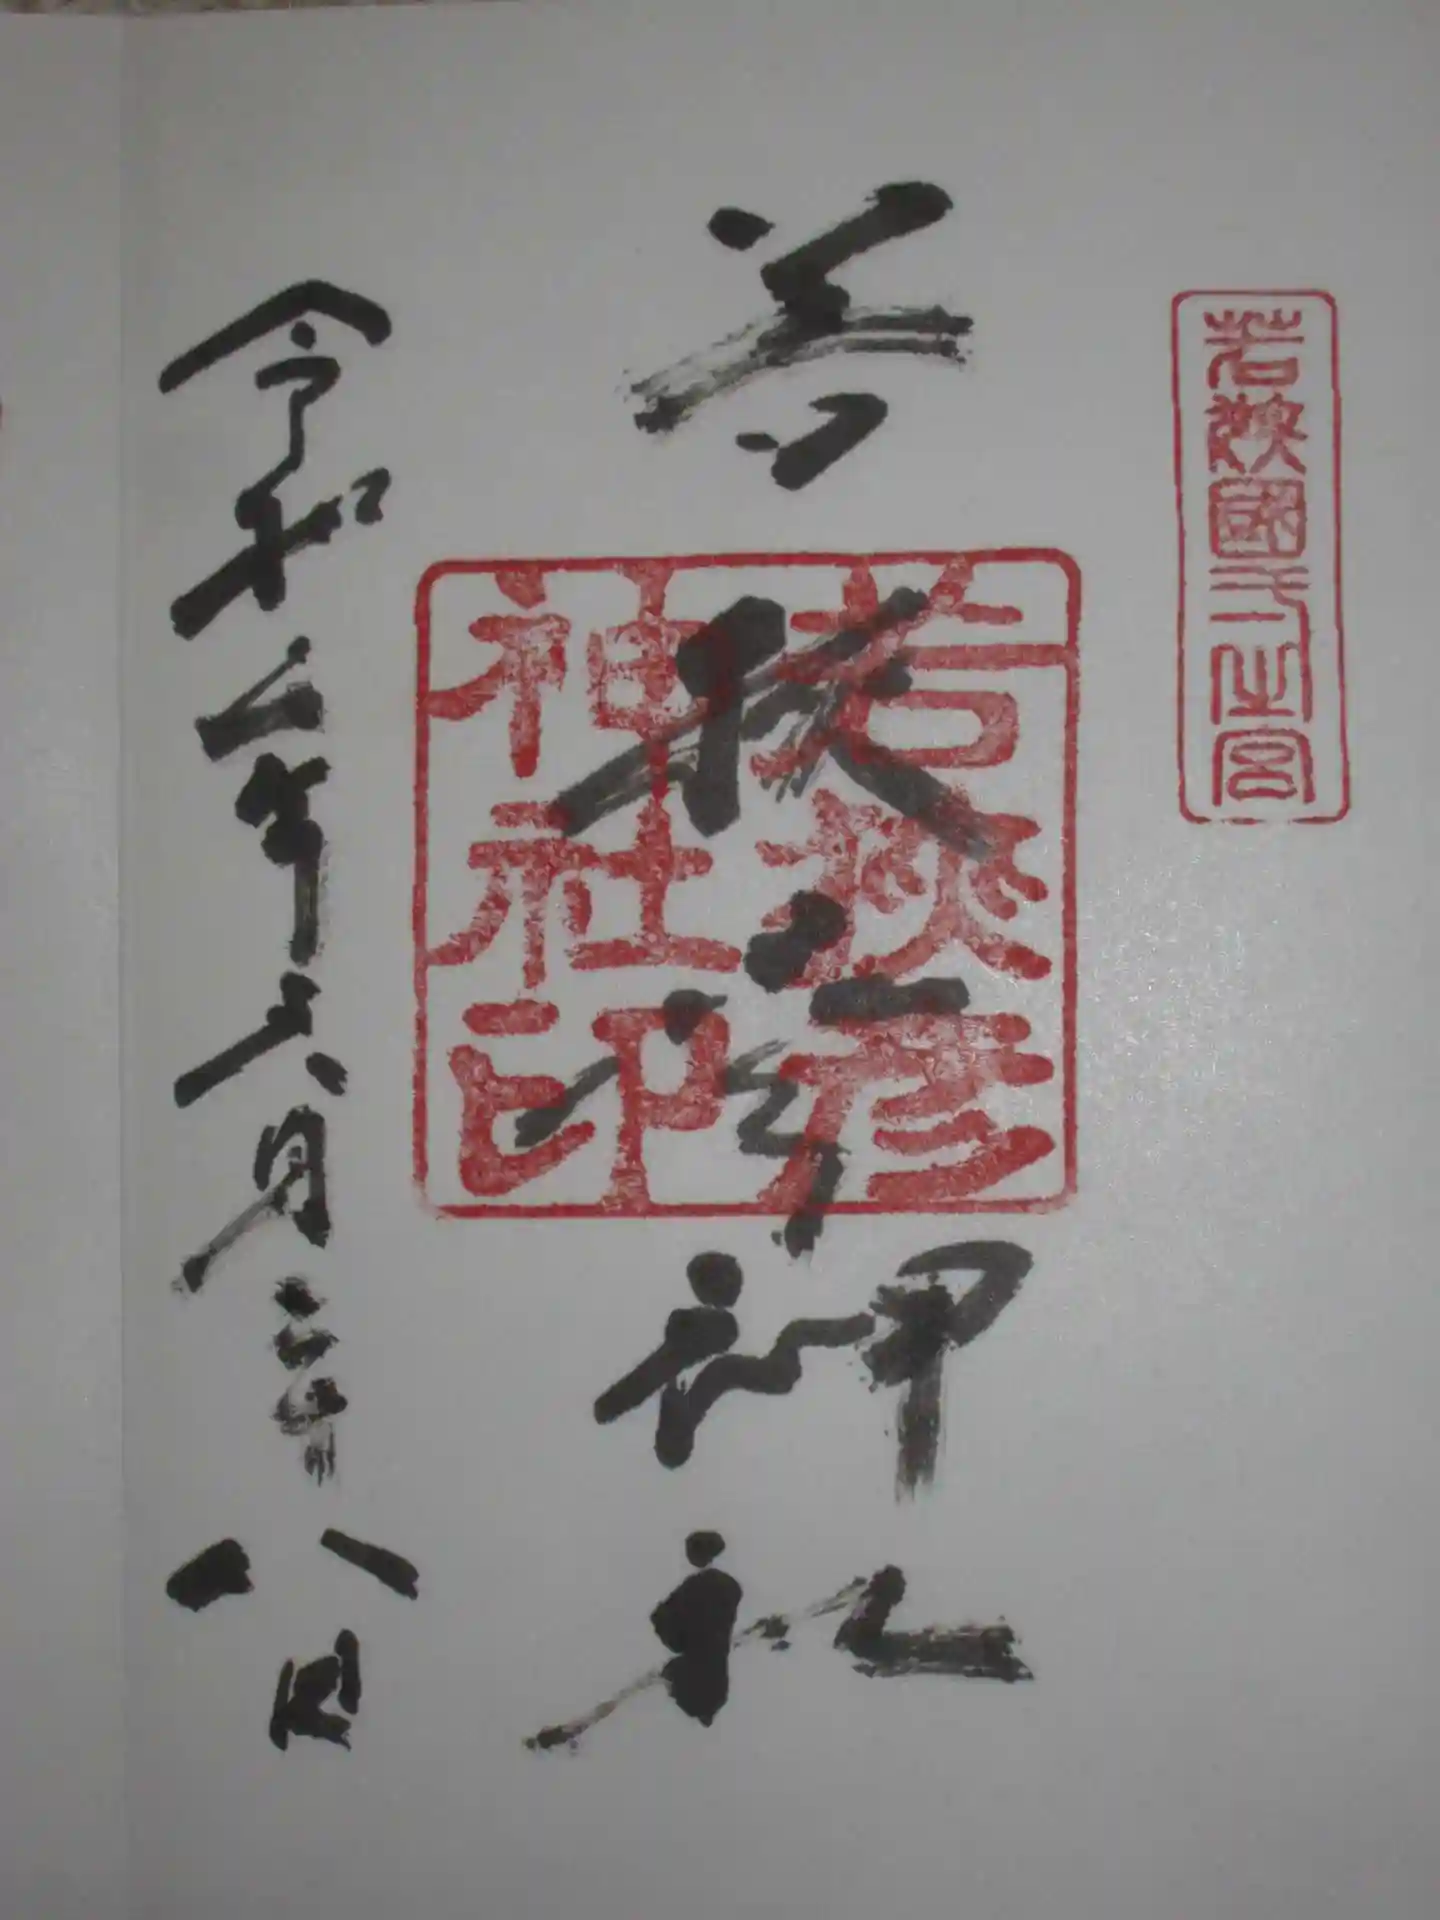 若狹國一之宮
若狹彦
神社印
若狭彦神社
令和二年六月二十八日